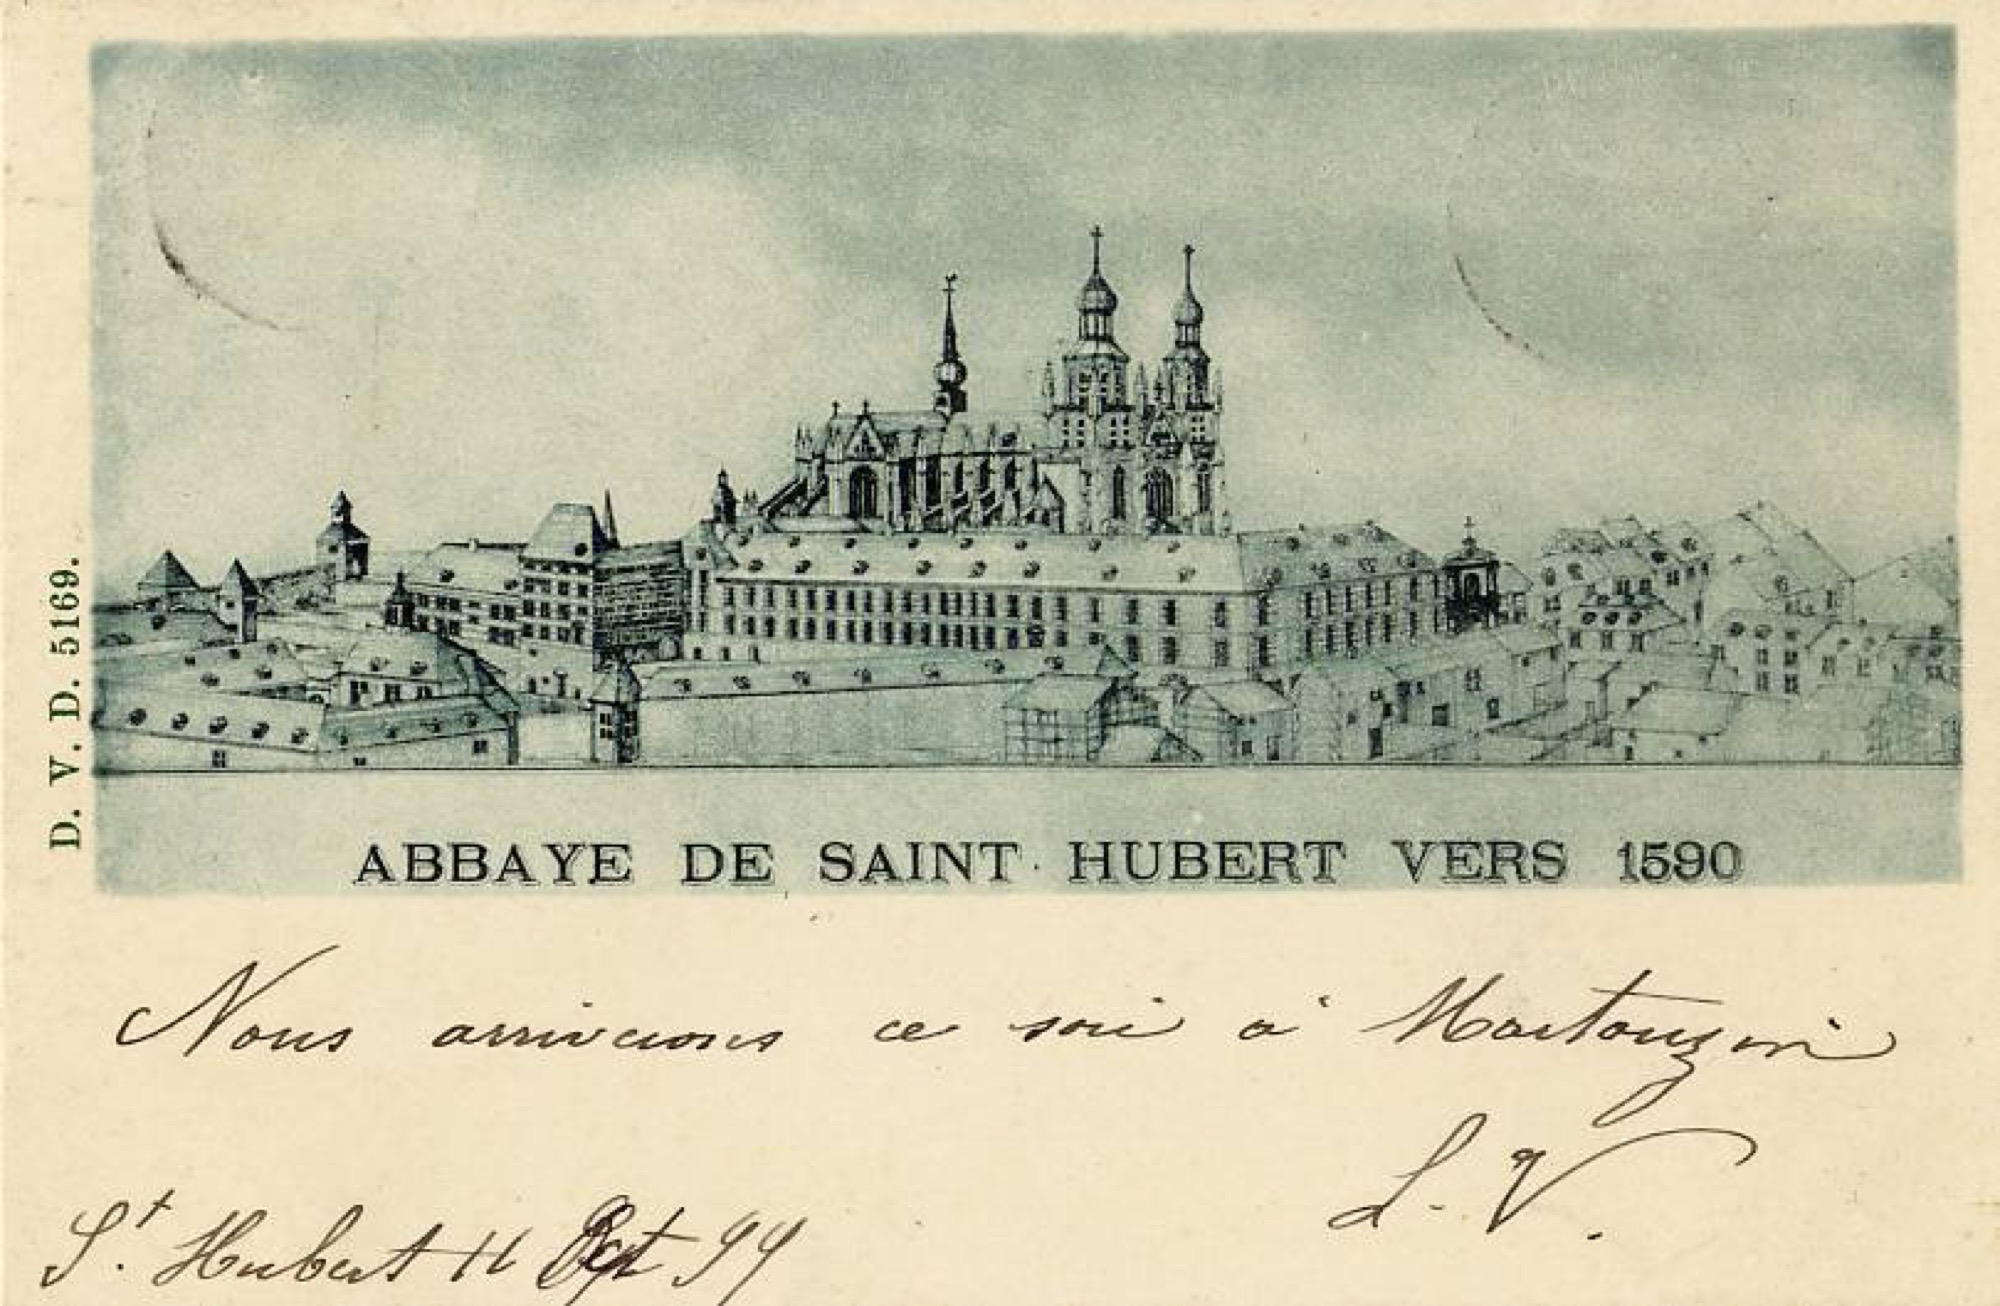 D. V. D. 5169.
ABBAYE DE SAINT HUBERT VERS 1590
Nous arriverons ce soir à Martouzin
L. V.
St. Hubert 11 99